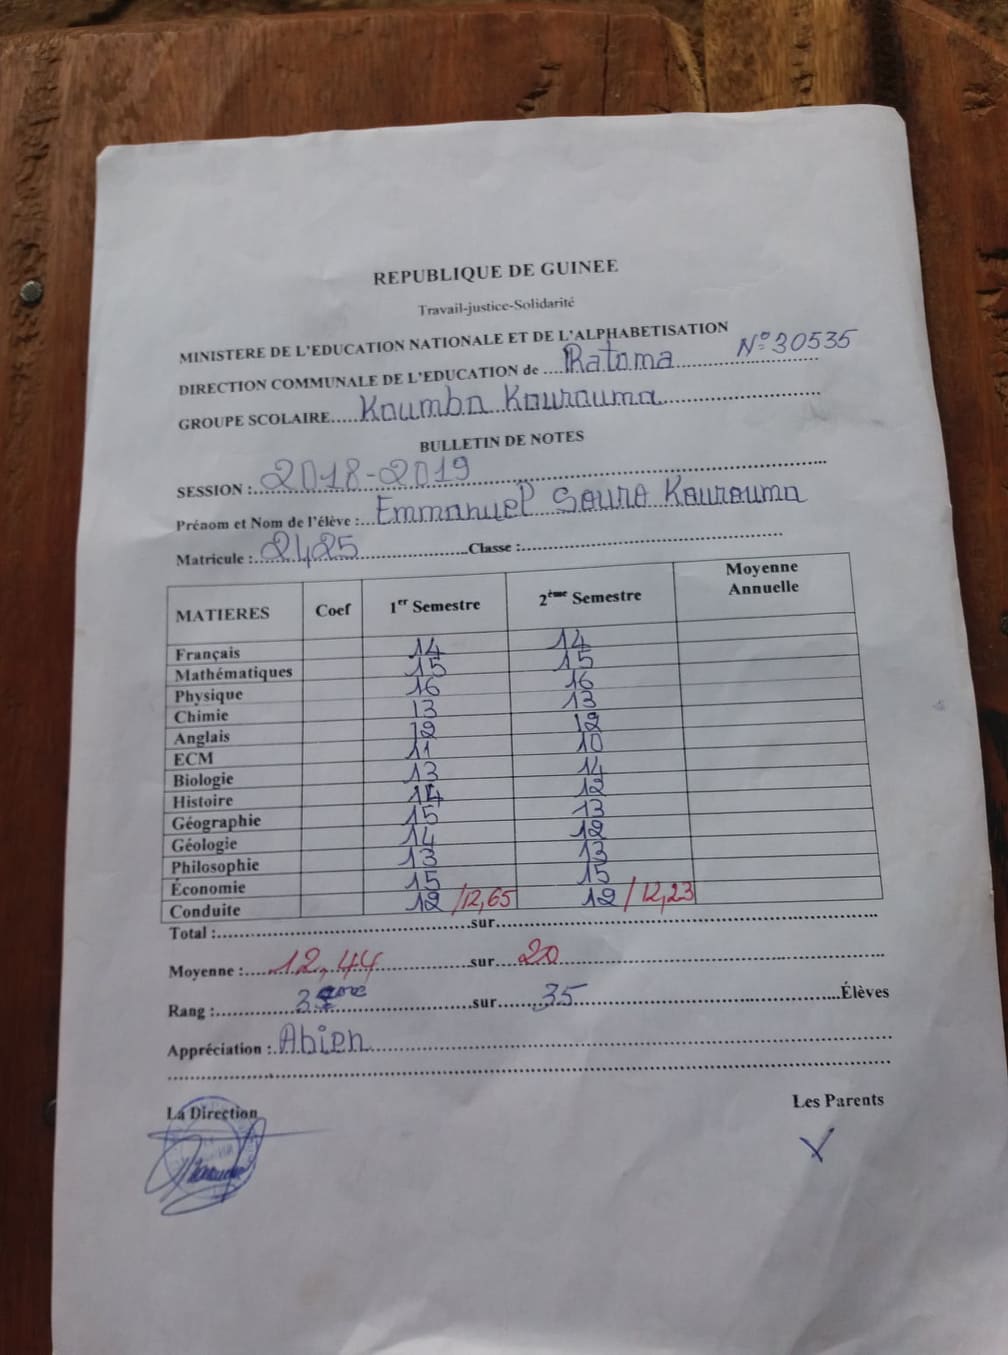 REPUBLIQUE DE GUINEE
Travail-justice-Solidarité
MINISTERE DE L'EDUCATION NATIONALE ET DE L'ALPHABETISATION
DIRECTION COMMUNALE DE L'EDUCATION de ....Ratoma.... N°30535
GROUPE SCOLAIRE.....Koumba Kourouma.....
BULLETIN DE NOTES
SESSION :..2018-2019.....
Prénom et Nom de l'élève :...Emmanuel Kourouma
Matricule :..2425.....Classe :.....
MATIERES Coef 1er Semestre 2ème Semestre Moyenne Annuelle
Français 14 14
Mathématiques 15 15
Physique 16 16
Chimie 13 13
Anglais 12 12
ECM 11 10
Biologie 13 14
Histoire 14 12
Géographie 15 13
Géologie 14 12
Philosophie 13 13
Économie 15 15
Conduite 12 /12,65 12 /12,23
Total :.....sur.....
Moyenne :....12,44.....sur...20.....
Rang :.....sur.....35.....Élèves
Appréciation :..Abien.....
La Direction Les Parents